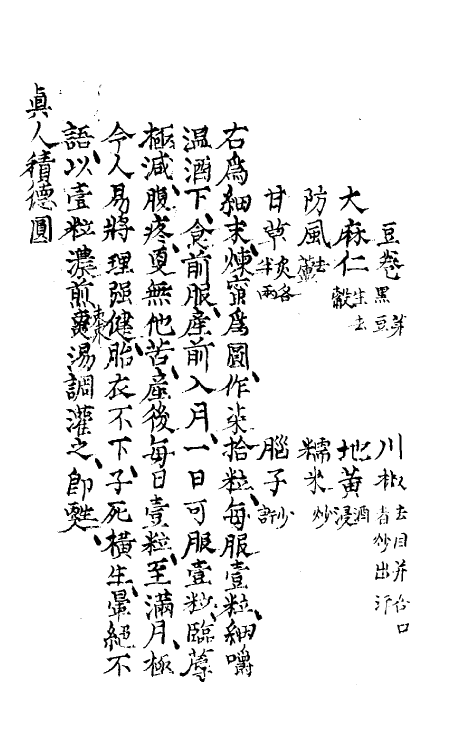 豆卷黑豆芽 川椒去目并合口者炒出汗
大麻仁生去殼 地黃酒浸
防風去蘆 糯米炒
甘草炙各半兩 腦子少許
右為細末煉蜜為圓作柒拾粒每服壹粒細嚼
温酒下食前服産前入月一日可服壹粒臨蓐
極減腹疼更無他苦産後每日壹粒至滿月極
令人易將理强健胎衣不下子死橫生暈絕不
語以壹粒濃煎棗湯調灌之即甦
真人積德圓